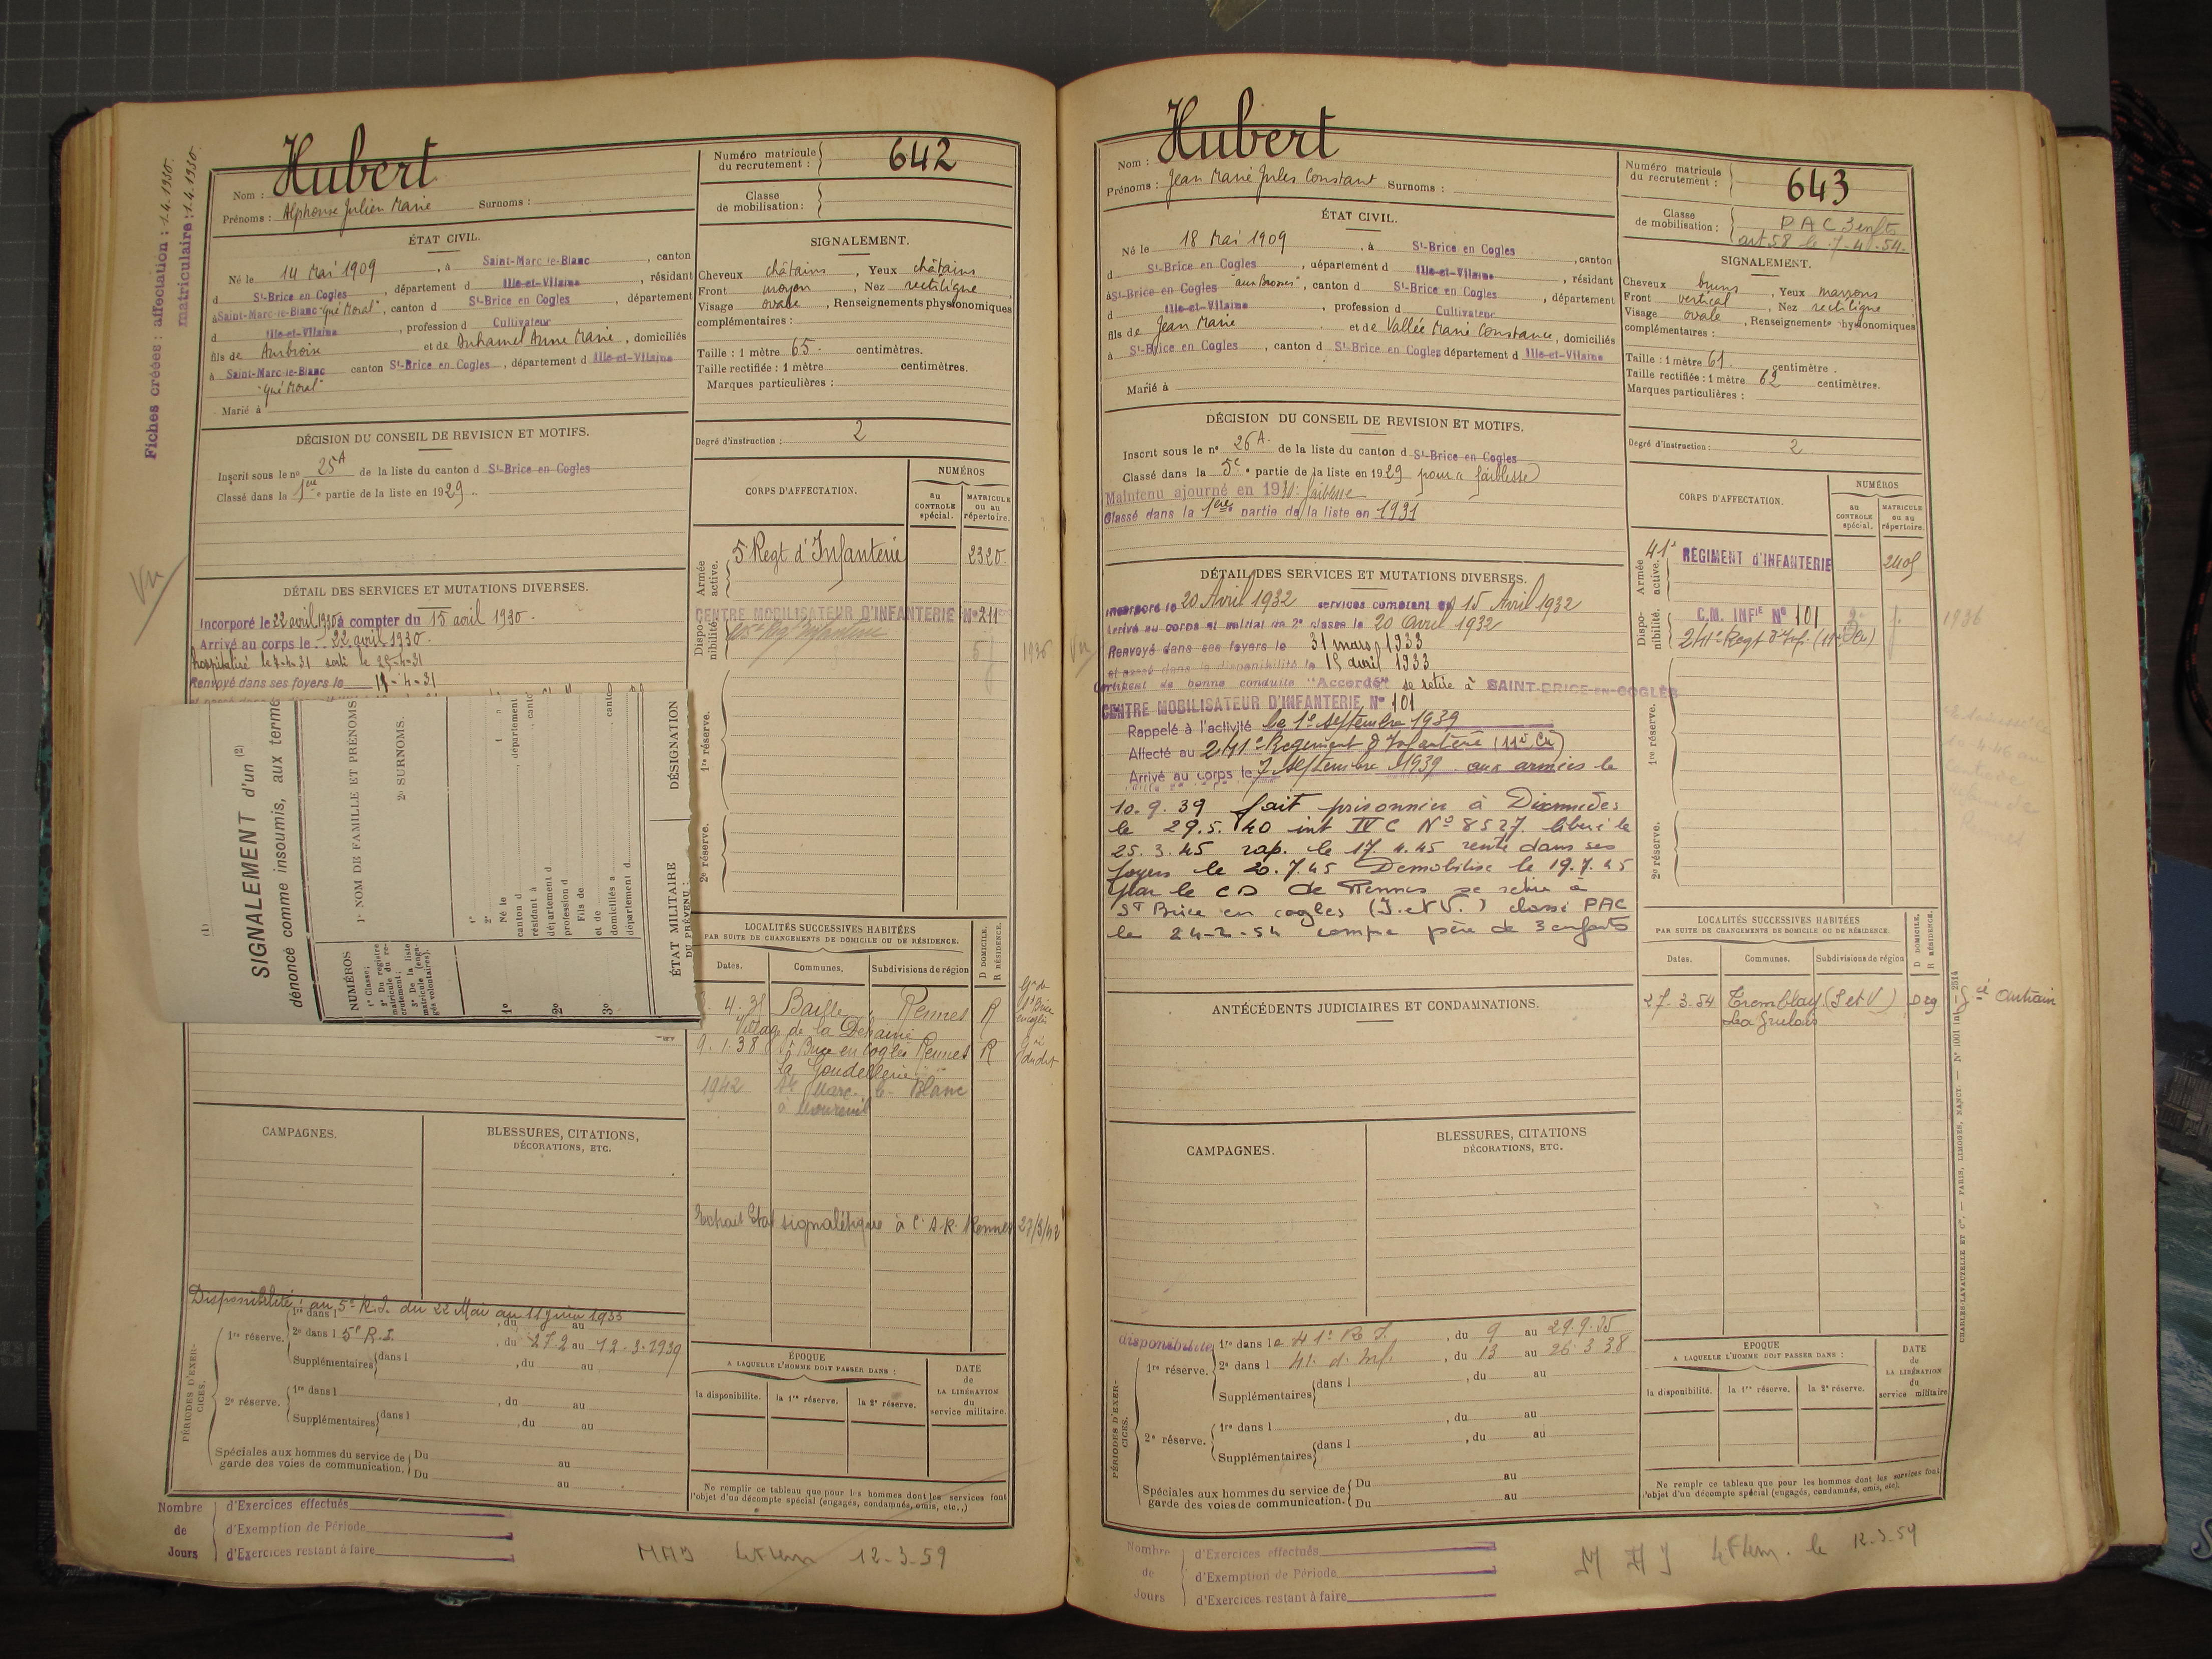 Fiches créées : affectation : 1.4.1930.
matriculaire : 1.4.1930.
Nom : Hubert
Prénoms : Alphonse Julien Marie Surnoms :
Numéro matricule du recrutement : 642
Classe de mobilisation :
ÉTAT CIVIL.
Né le 14 Mai 1909, à Saint-Marc-le-Blanc, canton
d St-Brice en Cogles, département d Ille-et-Vilaine, résidant
à Saint-Marc-le-Blanc "Gué Moral", canton d St-Brice en Cogles, département
d Ille-et-Vilaine, profession d Cultivateur
fils de Ambroise et de Duhamel Anne Marie, domiciliés
à Saint-Marc-le-Blanc canton St-Brice en Cogles, département d Ille-et-Vilaine
"Gué Moral"
Marié à
SIGNALEMENT.
Cheveux châtains, Yeux châtains
Front moyen, Nez rectiligne,
Visage ovale, Renseignements physionomiques
complémentaires :
Taille : 1 mètre 65 centimètres.
Taille rectifiée : 1 mètre centimètres.
Marques particulières :
Degré d'instruction : 2
DÉCISION DU CONSEIL DE REVISION ET MOTIFS.
Inscrit sous le no 25A de la liste du canton d St-Brice en Cogles
Classé dans la 1ère partie de la liste en 1929.
Vu
DÉTAIL DES SERVICES ET MUTATIONS DIVERSES.
Incorporé le 22 avril 1930 à compter du 15 avril 1930.
Arrivé au corps le 22 avril 1930.
Renvoyé dans ses foyers le -4-31
CORPS D'AFFECTATION.
NUMÉROS
au CONTROLE spécial.
MATRICULE ou au répertoire.
Armée active.
5 Regt d'Infanterie 2320
Disponibilité
CENTRE MOBILISATEUR D'INFANTERIE No 211
1936
1re réserve.
2e réserve.
(1)
SIGNALEMENT d'un (2)
dénoncé comme insoumis, aux terme
NUMÉROS
1o Classe;
2o Du registre matricule du recrutement;
3o De la liste matricule (engagés volontaires).
1o NOM DE FAMILLE ET PRÉNOMS
2o SURNOMS.
1o
2o
3o
Né le
canton d , département
résidant à , canto
département d
profession d
Fils de
et de
domiciliés à , canto
département d
ÉTAT MILITAIRE DU PRÉVENU :
DÉSIGNATION
LOCALITÉS SUCCESSIVES HABITÉES
PAR SUITE DE CHANGEMENTS DE DOMICILE OU DE RÉSIDENCE.
D DOMICILE. R RÉSIDENCE.
Dates. Communes. Subdivisions de région
Baillé Rennes R
Village de la
9.1.38 St Brice en Cogles Rennes R
La
1942 St Marc le Blanc
à
CAMPAGNES.
BLESSURES, CITATIONS,
DÉCORATIONS, ETC.
Extrait Etat signalétique à Rennes 27/3/42
Disponibilité : au 5e R.I. du 22 Mai au 11 Juin 1933
PÉRIODES D'EXERCICES.
1re réserve. 1re dans l , du au
2e dans l 5e R.I. , du 27.2 au 12.3.1939
Supplémentaires dans l , du au
2e réserve. 1re dans l , du au
Supplémentaires dans l , du au
Spéciales aux hommes du service de garde des voies de communication. Du au
Du au
ÉPOQUE
A LAQUELLE L'HOMME DOIT PASSER DANS :
la disponibilité. la 1re réserve. la 2e réserve.
DATE de LA LIBÉRATION du service militaire.
Ne remplir ce tableau que pour les hommes dont les services font
l'objet d'un décompte spécial (engagés, condamnés, omis, etc.,)
Nombre de Jours
d'Exercices effectués
d'Exemption de Période
d'Exercices restant à faire
12-3-59
Nom : Hubert
Prénoms : Jean Marie Jules Constant Surnoms :
Numéro matricule du recrutement : 643
Classe de mobilisation : PAC 3 enfts
art 58 le 7-4-54.
ÉTAT CIVIL.
Né le 18 Mai 1909, à St-Brice en Cogles, canton
d St-Brice en Cogles, département d Ille-et-Vilaine, résidant
à St-Brice en Cogles, canton d St-Brice en Cogles, département
d Ille-et-Vilaine, profession d Cultivateur
fils de Jean Marie et de Vallée Marie Constance, domiciliés
à St-Brice en Cogles, canton d St-Brice en Cogles département d Ille-et-Vilaine
Marié à
SIGNALEMENT.
Cheveux bruns, Yeux marrons
Front vertical, Nez rectiligne
Visage ovale, Renseignements physionomiques
complémentaires :
Taille : 1 mètre 61 centimètre.
Taille rectifiée : 1 mètre 62 centimètres.
Marques particulières :
Degré d'instruction : 2
DÉCISION DU CONSEIL DE REVISION ET MOTIFS.
Inscrit sous le no 26A de la liste du canton d St-Brice en Cogles
Classé dans la 5e partie de la liste en 1929 pour "faiblesse"
Maintenu ajourné en 1930: faiblesse
Classé dans la 1ère partie de la liste en 1931
DÉTAIL DES SERVICES ET MUTATIONS DIVERSES.
Incorporé le 20 Avril 1932 services comptant du 15 Avril 1932
Arrivé au corps et soldat de 2e classe le 20 Avril 1932
Renvoyé dans ses foyers le 31 mars 1933
et passé dans la disponibilité le 15 avril 1933
Certificat de bonne conduite "Accordé" se retire à SAINT-BRICE-EN-COGLÈS
CENTRE MOBILISATEUR D'INFANTERIE No 101
Rappelé à l'activité le 1er septembre 1939
Affecté au 241e Régiment d'Infanterie (11e Cie)
Arrivé au corps le 7 septembre 1939 aux armées le
10.9.39 fait prisonnier à Dixmudes
le 29.5.40 int IV C No 8527 libéré le
25.3.45 rap. le 17.4.45 rentré dans ses
foyers le 20.7.45 Demobilisé le 19.7.45
par le CD de Rennes se retire à
St Brice en cogles (I. et V.) classé PAC
le 24-2-54 comme père de 3 enfants
CORPS D'AFFECTATION.
NUMÉROS
au CONTROLE spécial.
MATRICULE ou au répertoire.
Armée active.
41e RÉGIMENT D'INFANTERIE 2405
Disponibilité.
C.M. INFIE No 101
241e Regt d'Inf. (11e Cie)
1936
1re réserve.
2e réserve.
ANTÉCÉDENTS JUDICIAIRES ET CONDAMNATIONS.
LOCALITÉS SUCCESSIVES HABITÉES
PAR SUITE DE CHANGEMENTS DE DOMICILE OU DE RÉSIDENCE.
D DOMICILE. R RÉSIDENCE.
Dates. Communes. Subdivisions de région
27-3-54 Tremblay (I et V) D Antrain
CAMPAGNES.
BLESSURES, CITATIONS
DÉCORATIONS, ETC.
PÉRIODES D'EXERCICES.
disponibilité
1re réserve. 1re dans le 41e R I., du 9 au 29.9.35
2e dans l 41e d'Inf., du 13 au 26.3.38
Supplémentaires dans l , du au
2e réserve. 1re dans l , du au
Supplémentaires dans l , du au
Spéciales aux hommes du service de garde des voies de communication. Du au
Du au
ÉPOQUE
A LAQUELLE L'HOMME DOIT PASSER DANS :
la disponibilité. la 1re réserve. la 2e réserve.
DATE de LA LIBÉRATION du service militaire
Ne remplir ce tableau que pour les hommes dont les services font
l'objet d'un décompte spécial (engagés, condamnés, omis, etc).
Nombre de Jours
d'Exercices effectués
d'Exemption de Période
d'Exercices restant à faire
le 12.3.59
CHARLES-LAVAUZELLE ET Cie. — PARIS, LIMOGES, NANCY.